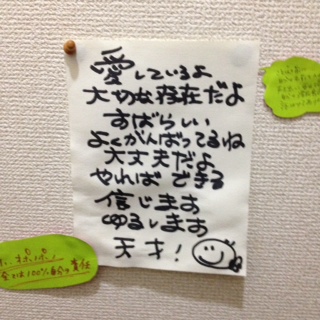 愛しているよ
大切な存在だよ
すばらしい
よくがんばってるね
大丈夫だよ
やればできる
信じます
ゆるします
天才!
全ては100%自分の責任